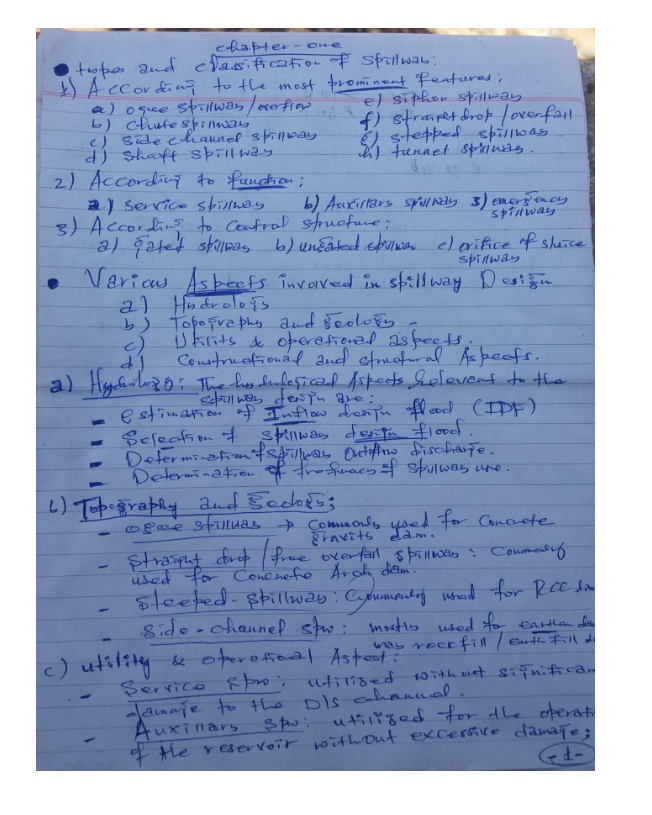 chapter-one
• types and classification of spillway:
1) According to the most prominent features;
a) ogee spillway / overflow e) siphon spillway
b) chute spillway f) straight drop / overfall
c) side channel spillway g) stepped spillway
d) shaft spillway h) tunnel spillway.
2) According to function;
a) service spillway b) Auxillary spillway 3) emergency spillway
3) According to Control structure:
a) gated spillway b) ungated spillway c) orifice of sluice spillway
• Various Aspects involved in spillway Design
a) Hydrology
b) Topography and geology -
c) Utility & operational aspects.
d) Constructional and structural Aspects.
a) Hydrology: The hydrological Aspects relevent to the
spillway design are:
- estimation of Inflow design flood (IDF)
- Selection of spillway design flood.
- Determination of spillway outflow discharge.
- Determination of frequency of spillway use.
b) Topography and geology;
- ogee spillway → commonly used for concrete
gravity dam.
- Straight drop / free overfall spillway: Commonly
used for Concrete Arch dam.
- Steeped-spillway: Commonly used for RCC
- Side-channel spw: mostly used for earthen
rockfill / earth fill
c) utility & operational Aspect:
- Service spw: utilised without
damage to the D/S channel.
- Auxillary spw: utilised for the
of the reservoir without excessive damage;
-1-